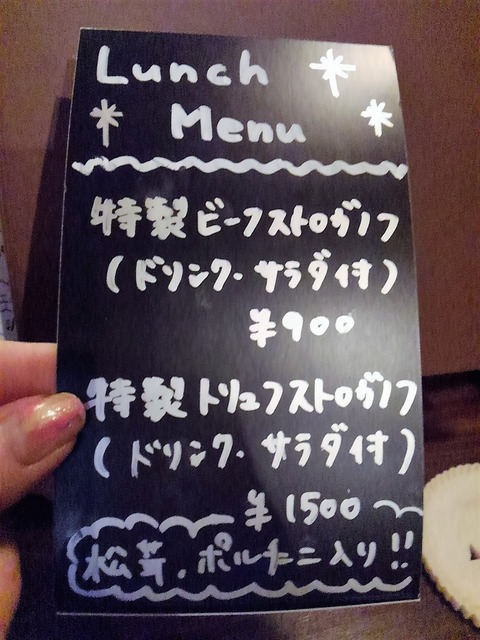 Lunch
Menu
特製ビーフストロガノフ
(ドリンク・サラダ付)
¥900
特製トリュフストロガノフ
(ドリンク・サラダ付)
¥1500
松茸、ポルチーニ入り!!